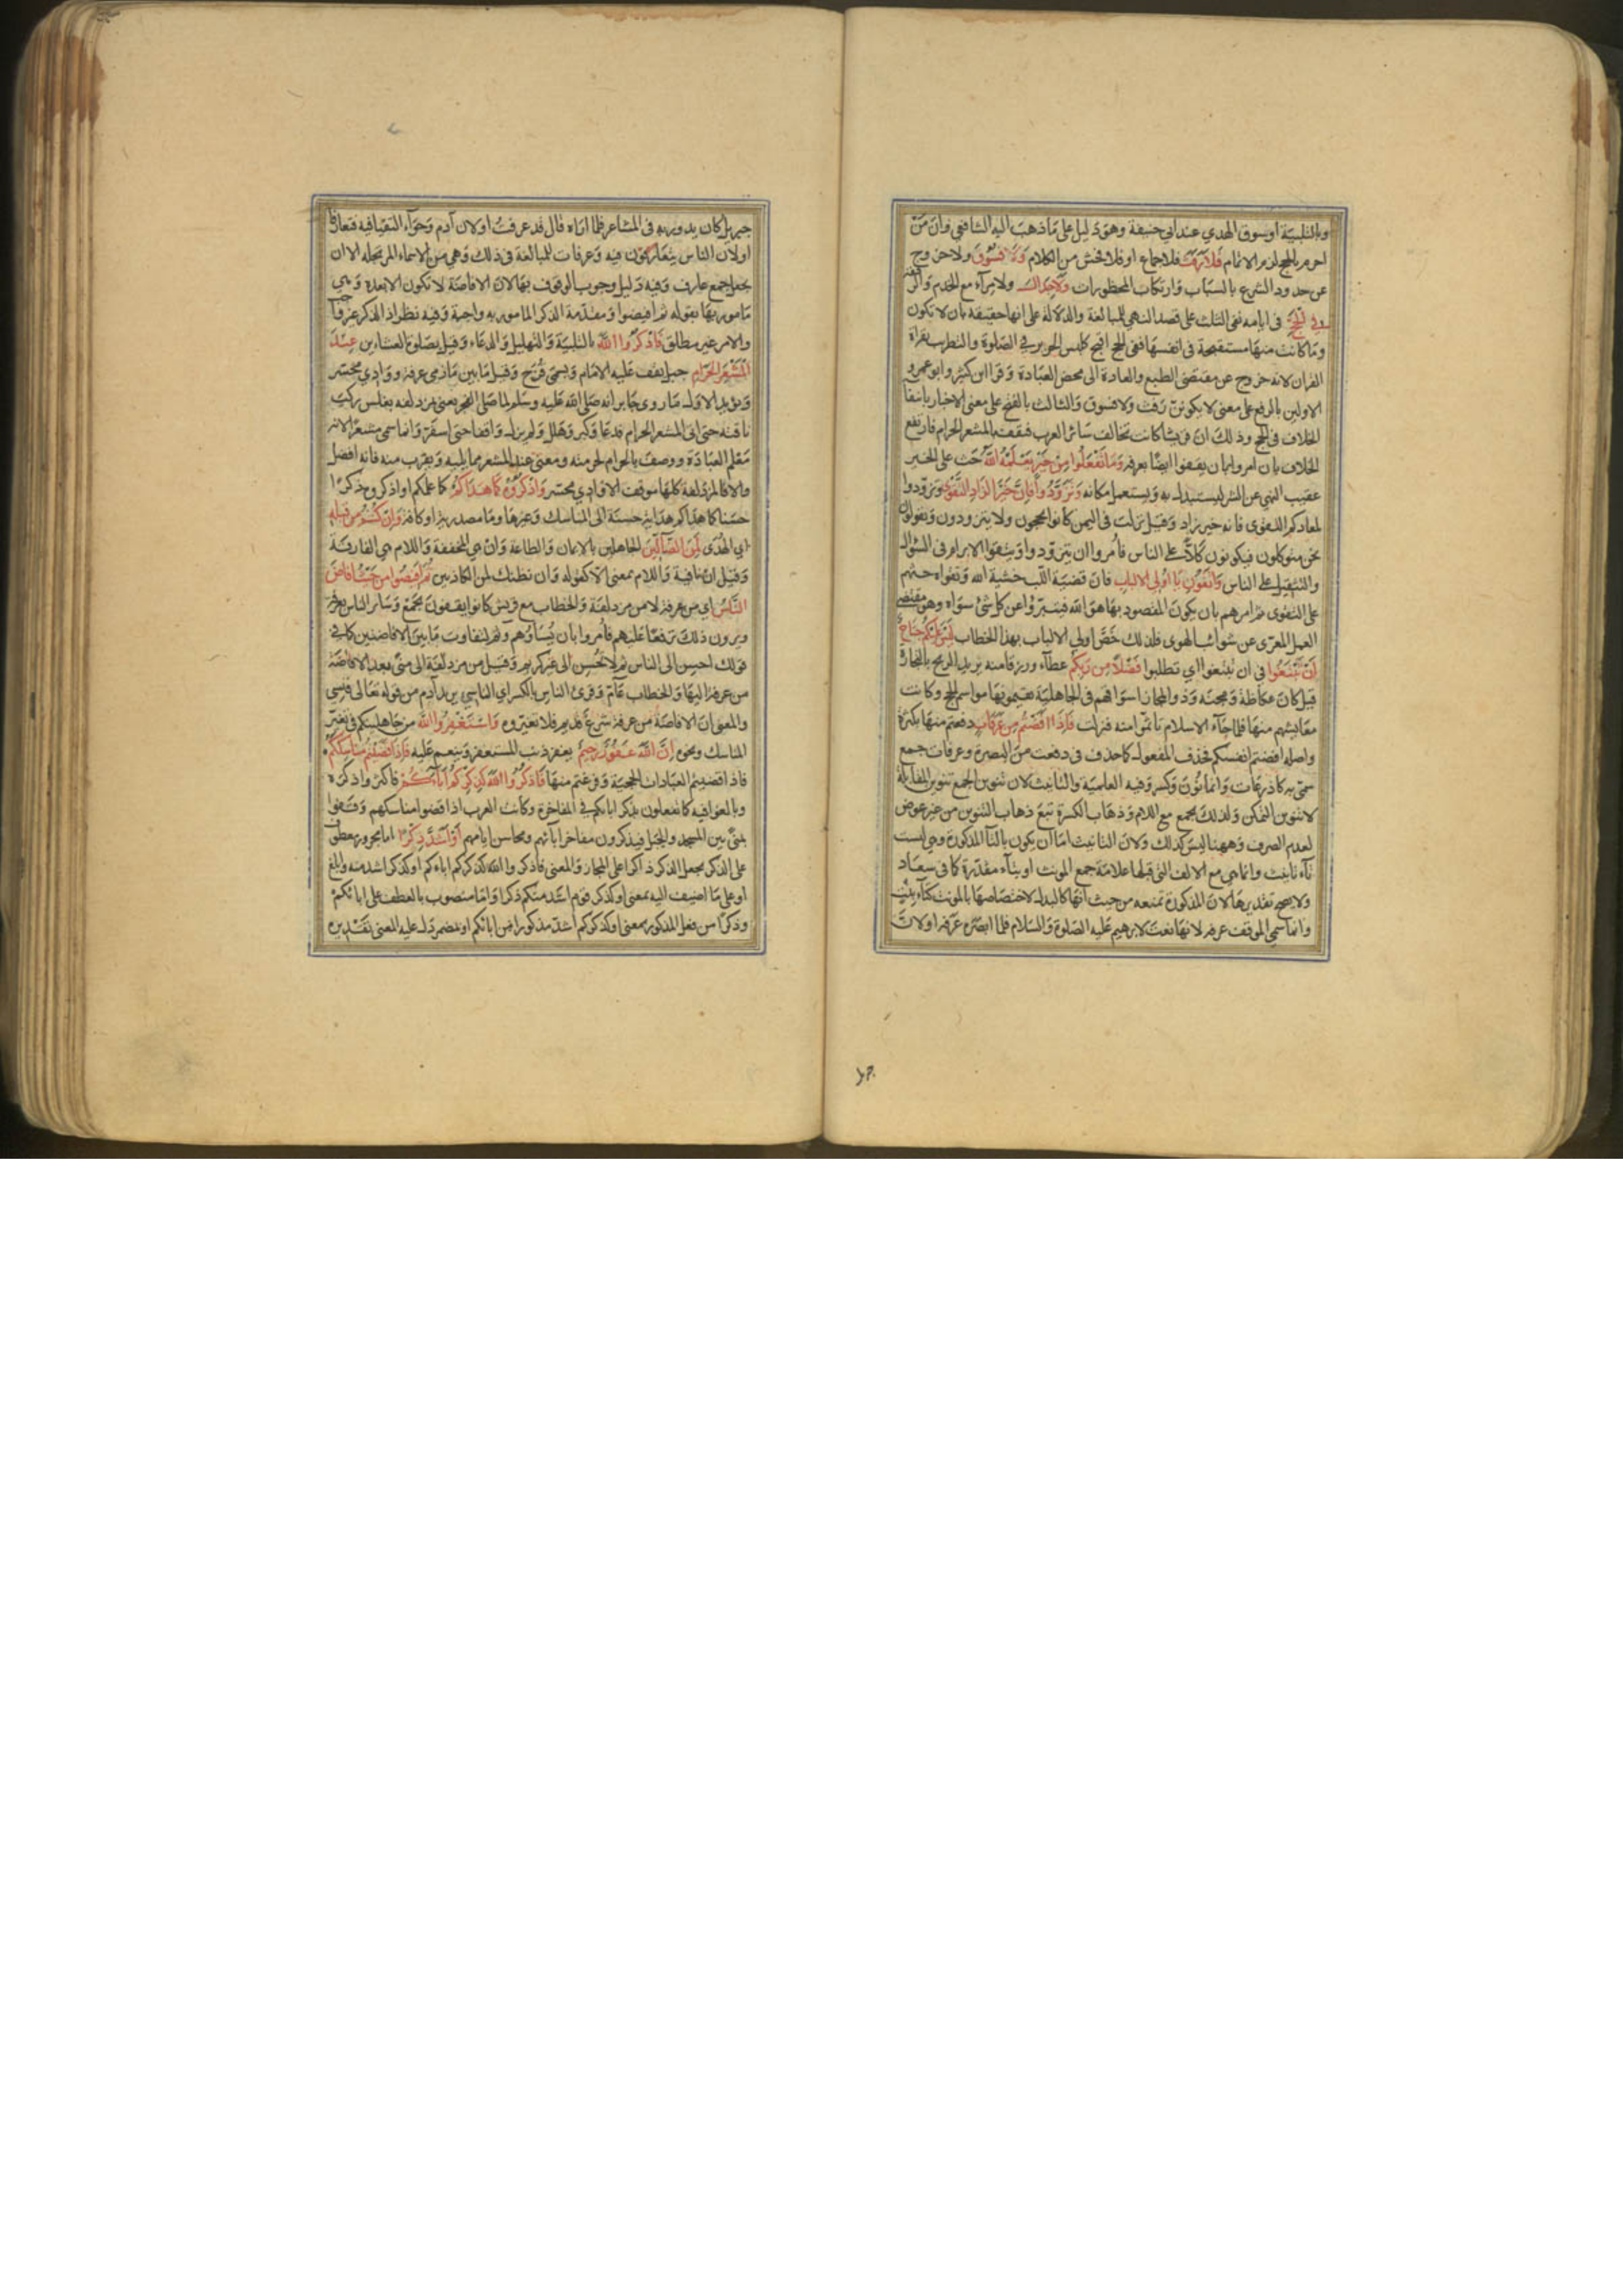 وبالتلبية او سوق الهدي عند ابي حنيفة وهو دليل على ما ذهب اليه الشافعي وان من
احرم بالحج لزمه الاتمام فلا رفث فلا جماع او فلا فحش من الكلام ولا فسوق ولا خروج
عن حدود الشرع بالسباب وارتكاب المحظورات ولا جدال ولا مراء مع الخدم والرفقة
في الحج في ايامه نفى الثلث على قصد النهي للمبالغة والدلالة على انها حقيقة بان لا تكون
وما كانت منها مستقبحة في انفسها ففي الحج اقبح كلبس الحرير في الصلوة والتطريب بقراة
القران لانه خروج عن مقتضى الطبع والعادة الى محض العبادة وقرا ابن كثير وابو عمرو
الاولين بالرفع على معنى لا يكونن رفث ولا فسوق والثالث بالفتح على معنى الاخبار بانتفا
الخلاف في الحج وذلك ان قريشا كانت تخالف سائر العرب فتقف بالمشعر الحرام فارتفع
الخلاف بان امروا بان يقفوا ايضا بعرفة وما تفعلوا من خير يعلمه الله حث على الخير
عقيب النهي عن الشر ليستبدل به ويستعمل مكانه وتزودوا فان خير الزاد التقوى وتزودوا
لمعادكم التقوى فانه خير زاد وقيل نزلت في اليمن كانوا يحجون ولا يتزودون ويقولون
نحن متوكلون فيكونون كلا على الناس فامروا ان يتزودوا ويتقوا الابرام في السؤال
والتثقيل على الناس واتقون يا اولي الالباب فان قضية اللب خشية الله وتقواه حثهم
على التقوى ثم امرهم بان يكون المقصود بها هو الله فيتبرؤا عن كل شئ سواه وهو مقتضى
العقل المعرى عن شوائب الهوى فلذلك خص اولي الالباب بهذا الخطاب ليس عليكم جناح
ان تبتغوا في ان تبتغوا اي تطلبوا فضلا من ربكم عطاء ورزقا منه يريد الربح بالتجارة
قيل كان عكاظ ومجنة وذو المجاز اسواقهم في الجاهلية يقيمونها مواسم الحج وكانت
معايشهم منها فلما جاء الاسلام تاثموا منه فنزلت فاذا افضتم من عرفات دفعتم منها بكثرة
واصله افضتم انفسكم فحذف المفعول كما حذف في دفعت من البصرة وعرفات جمع
سمي به كاذرعات وانما نون وكسر وفيه العلمية والتانيث لان تنوين الجمع تنوين المقابلة
لا تنوين التمكن ولذلك يجمع مع اللام وذهاب الكسرة تبع ذهاب التنوين من غير عوض
لعدم الصرف وههنا ليس كذلك ولان التانيث اما ان يكون بالتا المذكورة وهي ليست
تاء تانيث وانما هي مع الالف التي قبلها علامة جمع المونث او بتاء مقدرة كما في سعاد
ولا يصح تقديرها لان المذكورة تمنعه من حيث انها كالبدل لاختصاصها بالمونث كتاء بنت
وانما سمي الموقف عرفة لانها نعت لابرهيم عليه الصلوة والسلام فلما ابصره عرفه او لان
جبريل كان يدور به في المشاعر فلما اراه قال قد عرفت او لان آدم وحواء التقيا فيه فتعارفا
او لان الناس يتعارفون فيه وعرفات للمبالغة في ذلك وهي من الاسماء المرتجلة الا ان
يجعل جمع عارف وفيه دليل وجوب الوقوف بها لان الافاضة لا تكون الا بعده وهي
مامور بها بقوله ثم افيضوا ومقدمة الذكر المامور به واجبة وفيه نظر اذ الذكر غير واجب
والامر غير مطلق فاذكروا الله بالتلبية والتهليل والدعاء وقيل بصلوة العشاءين عند
المشعر الحرام جبل يقف عليه الامام ويسمى قزح وقيل ما بين مأزمي عرفة ووادي محسر
ويؤيد الاول ما روى جابر انه صلى الله عليه وسلم لما صلى الفجر يعني بمزدلفة بغلس ركب
ناقته حتى اتى المشعر الحرام فدعا وكبر وهلل ولم يزل واقفا حتى اسفر وانما سمي مشعرا لانه
معلم العبادة ووصف بالحرام لحرمته ومعنى عند المشعر مما يليه ويقرب منه فانه افضل
والا فالمزدلفة كلها موقف الا وادي محسر واذكروه كما هداكم كما علمكم او اذكروه ذكرا
حسنا كما هداكم هداية حسنة الى المناسك وغيرها وما مصدرية او كافة وان كنتم من قبله
اي الهدى لمن الضالين الجاهلين بالايمان والطاعة وان هي المخففة واللام هي الفارقة
وقيل ان نافية واللام بمعنى الا كقوله وان نظنك لمن الكاذبين ثم افيضوا من حيث افاض
الناس اي من عرفة لا من مزدلفة والخطاب مع قريش كانوا يقفون بجمع وسائر الناس بعرفة
ويرون ذلك ترفعا عليهم فامروا بان يساووهم وثم لتفاوت ما بين الافاضتين كما في
قولك احسن الى الناس ثم لا تحسن الى غير كريم وقيل من مزدلفة الى منى بعد الافاضة
من عرفة اليها والخطاب عام وقرئ الناس بالكسر اي الناسي يريد آدم من قوله تعالى فنسي
والمعنى ان الافاضة من عرفة شرع قديم فلا تغيروه واستغفروا الله من جاهليتكم في تغيير
المناسك ونحوه ان الله غفور رحيم يغفر ذنب المستغفر وينعم عليه فاذا قضيتم مناسككم
فاذا قضيتم العبادات الحجية وفرغتم منها فاذكروا الله كذكركم اباءكم فاكثروا ذكره
وبالغوا فيه كما تفعلون بذكر ابائكم في المفاخرة وكانت العرب اذا قضوا مناسكهم وقفوا
بمنى بين المسجد والجبل فيذكرون مفاخر آبائهم ومحاسن ايامهم او اشد ذكرا اما مجرور معطوف
على الذكر بجعل الذكر ذاكرا على المجاز والمعنى فاذكروا الله ذكرا كذكركم اباءكم او كذكر اشد منه وابلغ
او على ما اضيف اليه بمعنى او كذكر قوم اشد منكم ذكرا واما منصوب بالعطف على ابائكم
وذكرا من فعل المذكور بمعنى او كذكركم اشد مذكورا من ابائكم او بمضمر دل عليه المعنى تقديره